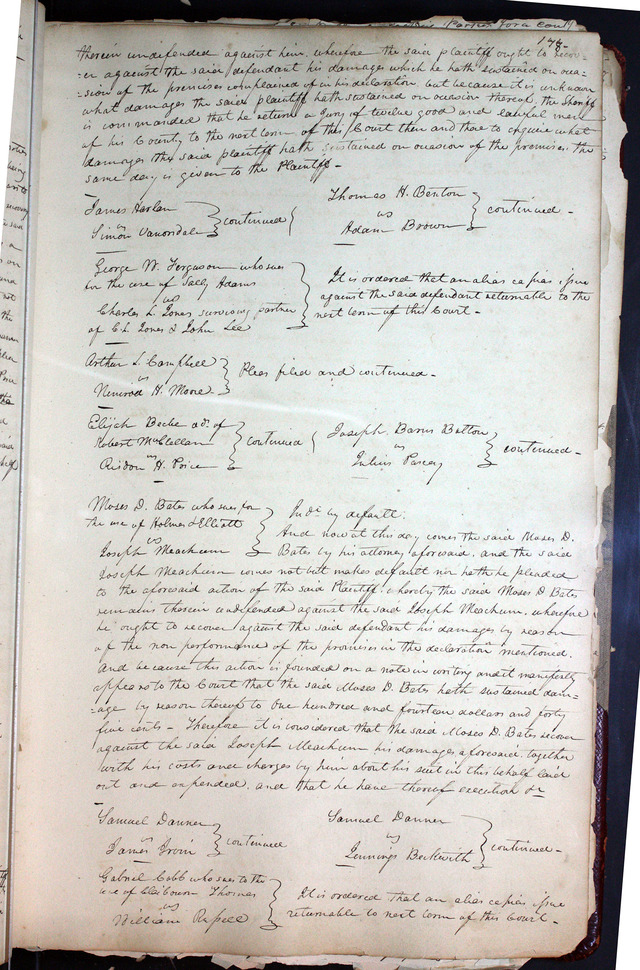 178-
therein undefended against him, wherefore the said plaintiff ought to recov-
-er against the said defendant his damages which he hath sustained on occa-
-sion of the premises complained of in his declaration but because it is unknown
what damages the said plaintiff hath sustained on occasion thereof, the Sheriff
is commanded that he return a Jury of twelve good and lawful men
of his County to the next term of this Court then and there to enquire what
damages the said plaintiff hath sustained on occasion of the premises, the
same day is given to the Plaintiff-
James Harlan
vs
Simon Vanorsdale
continued
Thomas H. Benton
vs
Adam Brown
continued-
George W. Ferguson who sues
for the use of Sally Adams
vs
Charles L. Jones surviving partner
of C L Jones & John Lee
It is ordered that an alias capias issue
against the said defendant returnable to the
next term of this Court-
Arthur L. Campbell
vs
Nimrod H. Moore
Pleas filed and continued-
Elijah ad. of
Robert McClellan
vs
H. Price
continued
Joseph
vs
Julius
continued-
Moses D. Bates who sues for
the use of Holmes & Elliott
vs
Joseph Meachum
Jud. by default.
And now at this day comes the said Moses D.
Bates by his attorney aforesaid, and the said
Joseph Meachum comes not but makes default nor hath he pleaded
to the aforesaid action of the said Plaintiff, whereby the said Moses D Bates
remains therein undefended against the said Joseph Meachum, wherefore
he ought to recover against the said defendant his damages by reason
of the non performance of the promises in the declaration mentioned.
And because this action is founded on a note in writing and it manifestly
appears to the Court that the said Moses D. Bates hath sustained dam-
-age by reason thereof to One hundred and fourteen dollars and forty
five cents- Therefore it is considered that the said Moses D. Bates recover
against the said Joseph Meachum his damages aforesaid, together
with his costs and charges by him about his suit in this behalf laid
out and expended, and that he have thereof execution &c
Samuel Danner
vs
James Irvin
continued
Samuel Danner
vs
Jennings Beckwith
continued-
Gabriel Cobb who sues to the
use of Claibourn Thomas
vs
William Russell
It is ordered that an alias capias issue
returnable to next term of this Court-